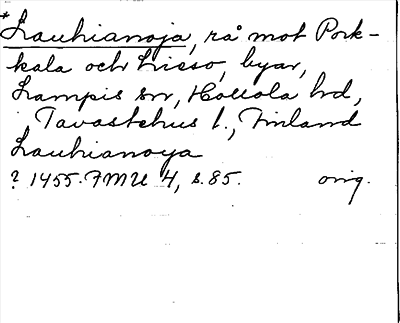 *Lauhianoja, rå mot Pork-
kala och Lieso, byar,
Lampis sn, Hollola hd,
Tavastehus l., Finland
Lauhianoya
? 1455. FMU 4, s. 85. orig.